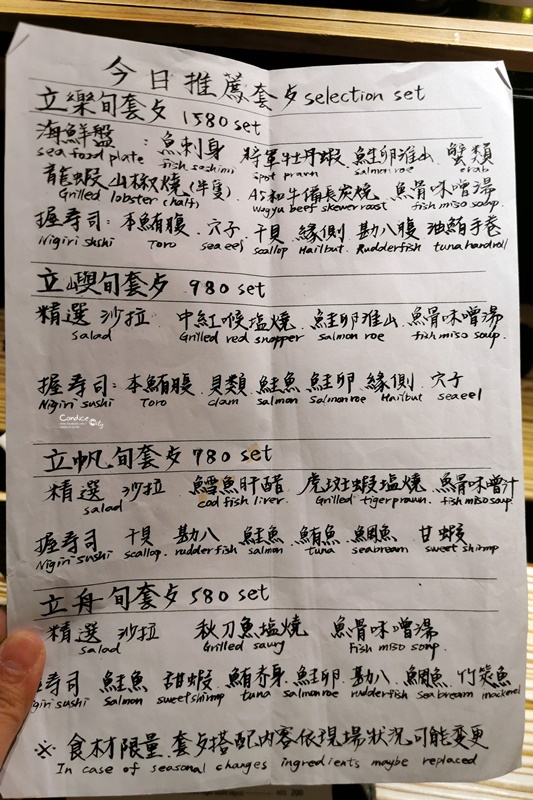 今日推薦套歺 selection set
立樂旬套歺 1580 set
海鮮盤 : 魚刺身 將軍牡丹蝦 鮭卵准山 蟹類
sea food plate fish sashimi spot prawn salmon roe crab
龍蝦山椒燒(半隻) A5和牛備長炭燒 魚骨味噌湯
Grilled lobster (half) wagyu beef skewer roast fish miso soup.
握壽司:本鮪腹 穴子 干貝 緣側 勘八腹 油鮪手卷
Nigiri sushi Toro sea eel scallop Halibut Rudderfish tuna handroll
立嶼旬套歺 980 set
精選 沙拉 中紅喉塩燒 鮭卵准山 魚骨味噌湯
salad Grilled red snapper salmon roe fish miso soup.
握壽司:本鮪腹 貝類 鮭魚 鮭卵 緣側 穴子
Nigiri sushi Toro clam salmon Salmon roe Hailbut sea eel
Candice
立帆旬套歺 780 set
精選 沙拉 鱈魚肝醋 虎斑蝦塩燒 魚骨味噌汁
salad cod fish liver. Grilled tiger prawn. fish miso soup.
握壽司 干貝 勘八 鮭魚 鮪魚 鯛魚 甘蝦
Nigiri sushi scallop. rudder fish salmon tuna seabream sweet shrimp
立舟旬套歺 580 set
精選 沙拉 秋刀魚塩燒 魚骨味噌湯
salad Grilled saury Fish miso soup.
壽司 鮭魚 甜蝦 鮪赤身 鮭卵 勘八 鯛魚 竹筴魚
sushi Salmon sweet shrimp tuna salmon roe rudderfish Sea bream mackerel
※ 食材限量 套歺搭配內容依現場狀況可能變更
In case of seasonal changes ingredients maybe replaced